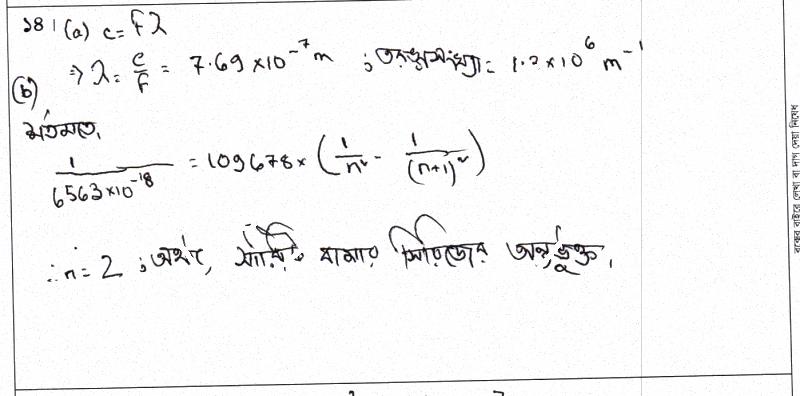 ১৪। (a) c = fλ
⇒ λ = c/f = 7.69 × 10⁻⁷ m ; তরঙ্গসংখ্যা = 1.2 × 10⁶ m⁻¹
(b)
শর্তমতে,
1/(6563×10⁻¹⁸) = 109678 × (1/n² - 1/(n+1)²)
∴ n = 2 ; অর্থাৎ, বামার সিরিজের অন্তর্ভুক্ত।
বক্সের বাইরে লেখা বা দাগ দেয়া নিষেধ